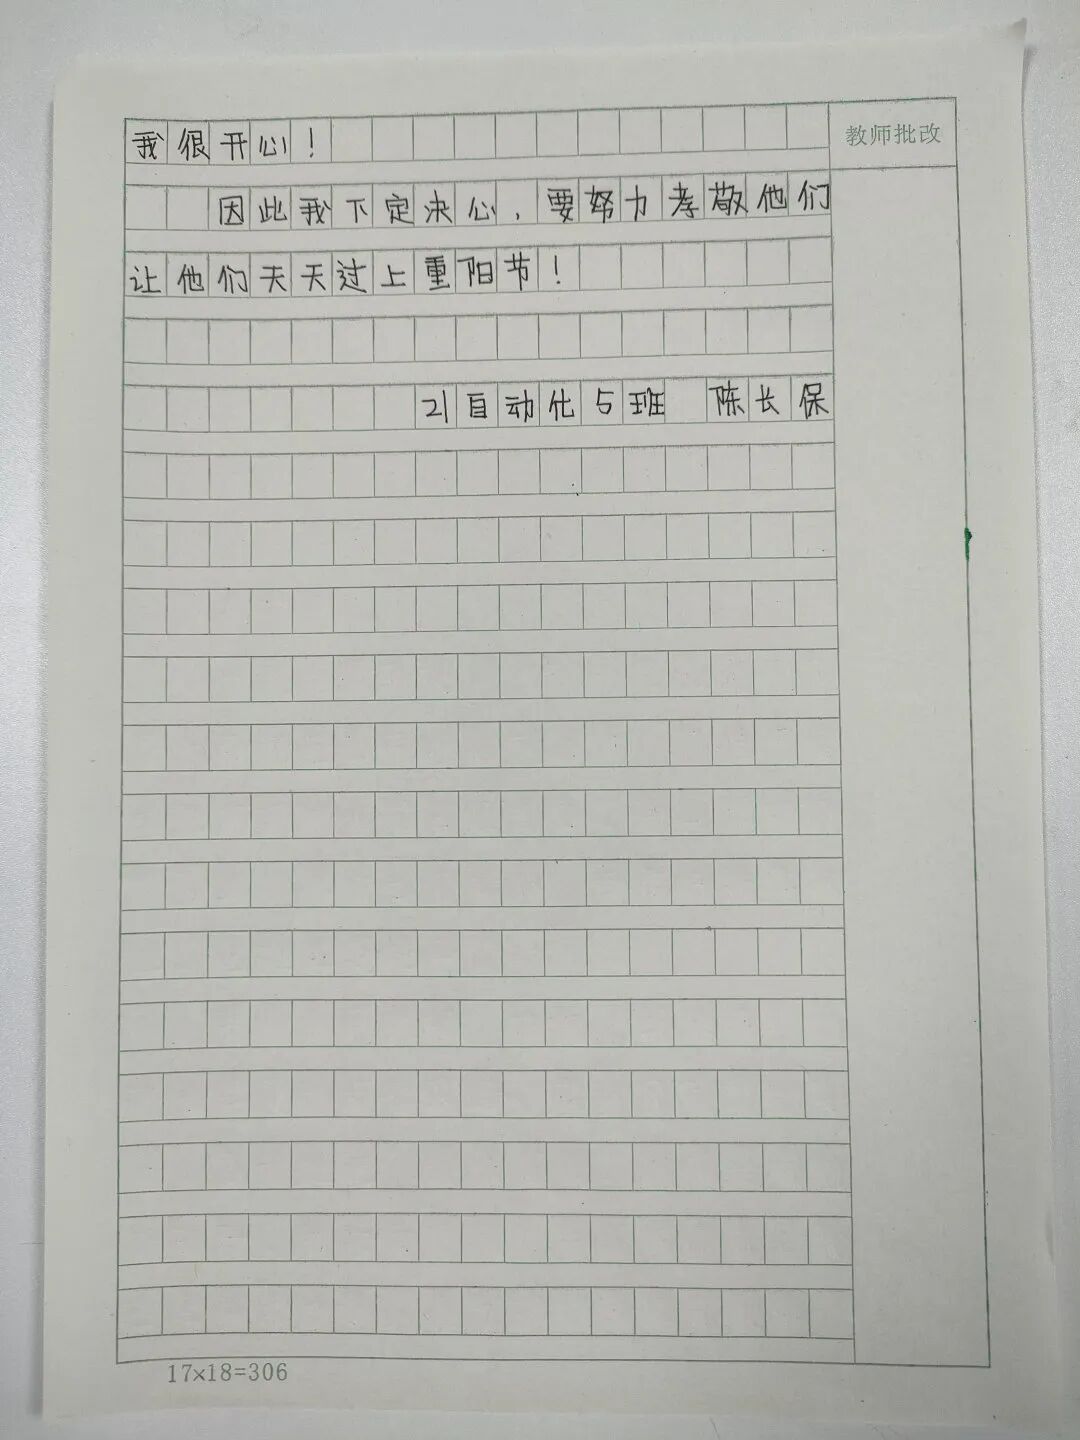 我很开心！
教师批改
因此我下定决心，要努力孝敬他们
让他们天天过上重阳节！
21自动化5班 陈长保
17×18=306